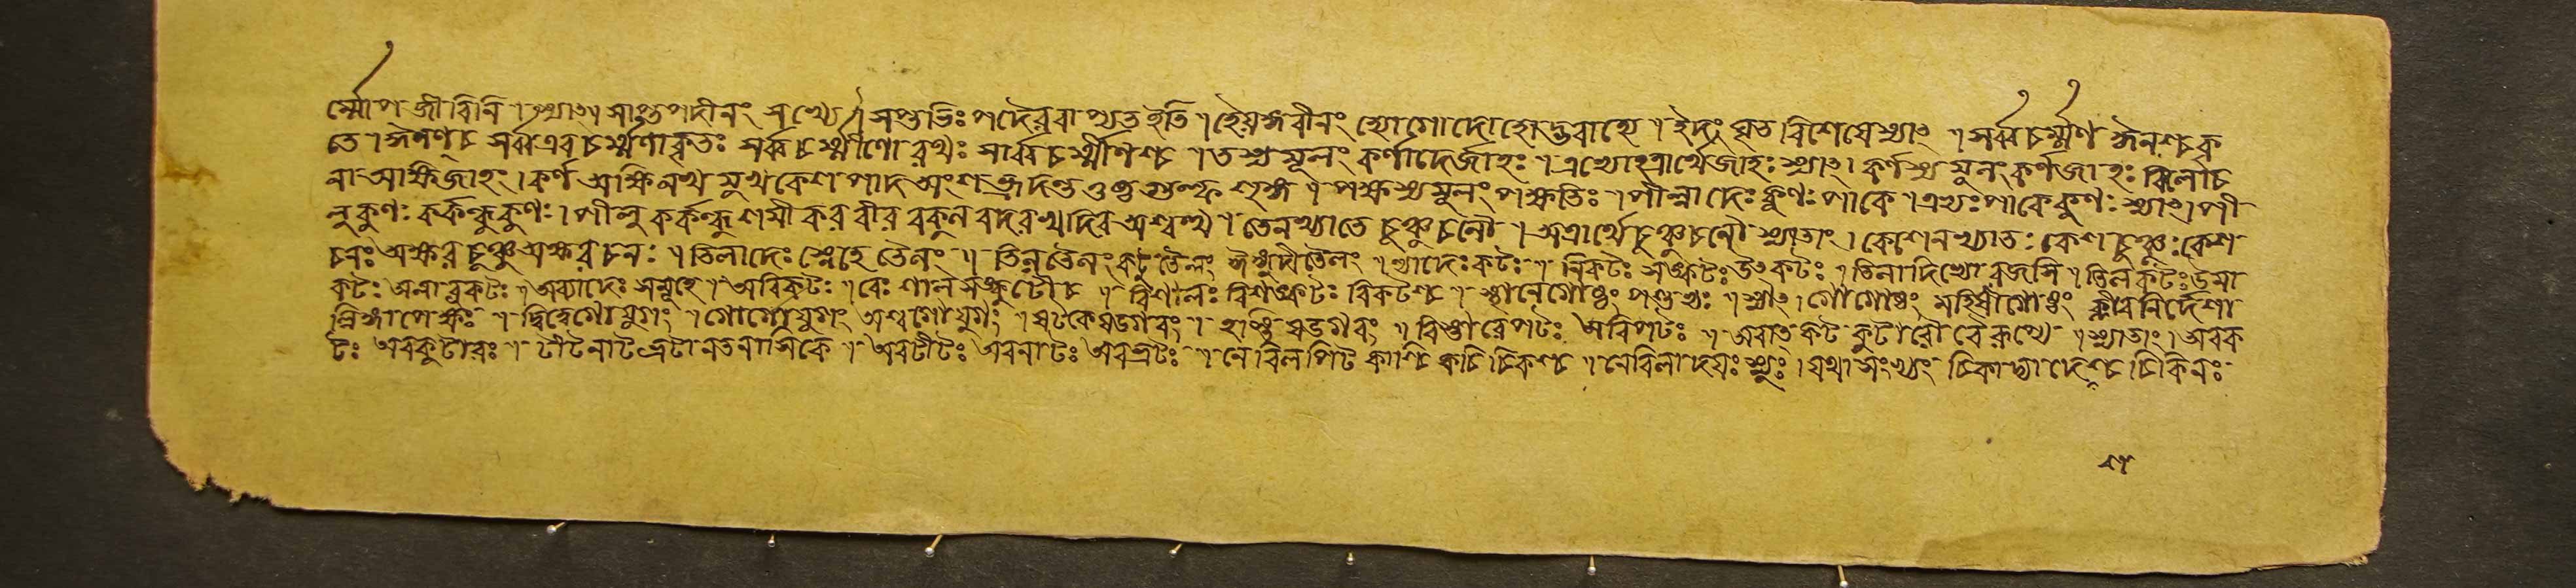 র্ম্মোপজীবিনি । স্যাৎ । সাপ্তপদীনং সখ্যে । সপ্তভিঃ পদৈরবাপ্যত ইতি । হৈয়ঙ্গবীনং হ্যোগোদোহোদ্ভবাহ্যে । ইদং ঘৃত বিশেষে স্যাৎ । সর্ব্বচর্ম্মণ ঈনশ্চ কৃ
তে । ঈনণ্ চ সর্ব্ব এব চর্ম্মণা কৃতঃ সর্ব্বচর্ম্মীণো রথঃ সার্ব্বচর্ম্মীণশ্চ । তস্য মূলং কর্ণাদের্জাহঃ । এষ্বোঽত্রার্থে জাহঃ স্যাৎ । কর্ণস্য মূলং কর্ণজাহঃ বিলোচ
না অক্ষিজাহং । কর্ণ অক্ষি নখ মুখ কেশ পাদ অংশ ভ্রূ দন্ত ওষ্ঠ গুল্ফ শৃঙ্গ । পক্ষস্য মূলং পক্ষতিঃ । পীল্বাদেঃ কুণঃ পাকে । এষ্যঃ পাকে কুণঃ স্যাৎ । পী
লুকুণঃ কর্কন্ধুকুণঃ । পীলু কর্কন্ধু শমী করবীর বকুল বদর খদির অশ্বত্থ । তেন খ্যাতে চুঞ্চুচনৌ । অত্রার্থে চুঞ্চুচনৌ স্যাতাং । কেশেন খ্যাতঃ কেশচুঞ্চুঃ কেশ
চনঃ অক্ষরচুঞ্চু অক্ষরচনঃ । তিলাদেঃ স্নেহে তৈলং । তিলতৈলং কটুতৈলং ইঙ্গুদীতৈলং । ষ্যাদেঃ কটঃ । বিকটঃ সঙ্কটঃ উৎকটঃ । তিলাদিষ্যো রজসি । তিলকটঃ উমা
কটঃ অলাবুকটঃ । অব্যাদেঃ সমূহে । অবিকটঃ । বেঃ শালসঙ্কুটৌ চ । বিশালঃ বিশঙ্কটঃ বিকটশ্চ । স্থানে গোষ্ঠং পশুষ্যঃ । স্যাৎ । গোগোষ্ঠং মহিষীগোষ্ঠং ক্লীবনির্দেশা
ল্লিঙ্গাপেক্ষঃ । দ্বিত্বে গোযুগং । গোগোযুগং অশ্বগোযুগং । ষট্কে ষড্গবং । হস্তিষড্গবং । বিস্তারে পটঃ অবিপটঃ । অবাত্ কট কুটারৌ বৈরূপ্যে । স্যাতাং । অবক
টঃ অবকুটারঃ । টীটনাটভ্রটা নতনাসিকে । অবটীটঃ অবনাটঃ অবভ্রটঃ । নে র্বিলপিট কাশ্চি কচি চিকশ্চ । নের্বিলাদয়ঃ স্যুঃ । যথাসংখ্যং চিকাদ্যাদেশ্চ চিকিনঃ